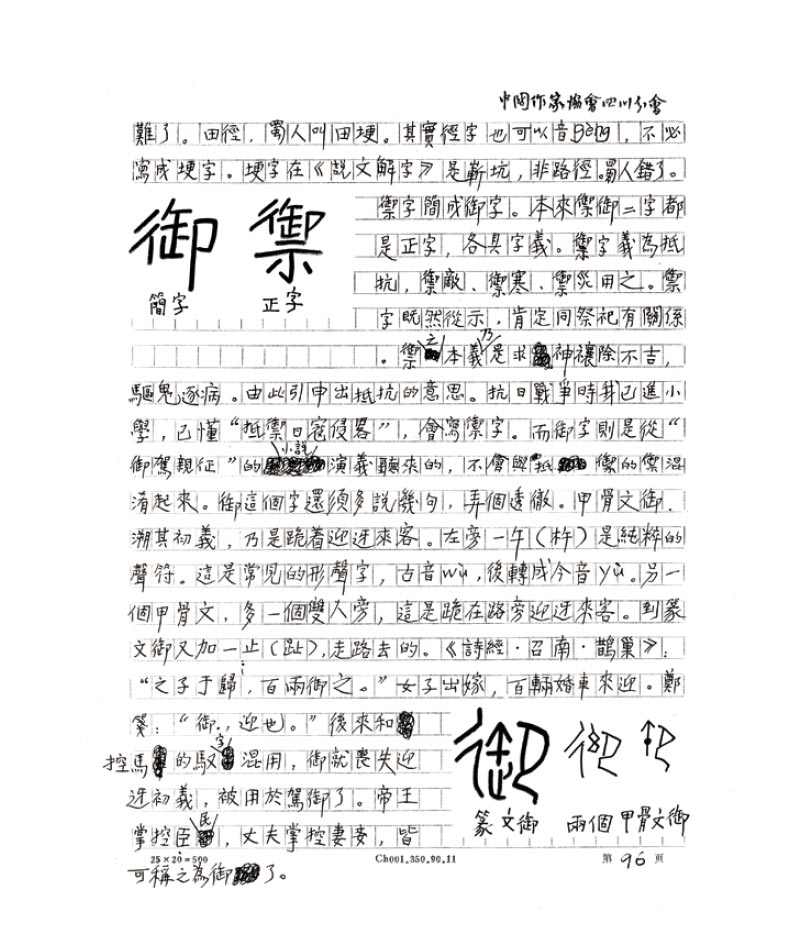 中國作家協會四川分會
難了。田徑，蜀人叫田埂。其實徑字也可以音
，不必
寫成埂字。埂字在《說文解字》是塹坑，非路徑。蜀人錯了。
禦字簡成御字。本來禦御二字都
是正字，各具字義。禦字義為抵
抗，禦敵、禦寒、禦災用之。禦
字既然從示，肯定同祭祀有關係
御 禦
簡字 正字
。禦之本義乃是求神禳除不吉，
驅鬼逐病。由此引申出抵抗的意思。抗日戰爭時我已進小
學，已懂“抵禦日寇侵畧”，會寫禦字。而御字則是從“
御駕親征”的小說演義聽來的，不會與抵禦的禦混
淆起來。御這個字還須多說幾句，弄個透徹。甲骨文御，
溯其初義，乃是跪着迎迓來客。左旁一午（杵）是純粹的
聲符。這是常見的形聲字，古音wù，後轉成今音yù。另一
個甲骨文，多一個雙人旁，這是跪在路旁迎迓來客。到篆
文御又加一止（趾），走路去的。《詩經·召南·鵲巢》：
“之子于歸，百兩御之。”女子出嫁，百輛婚車來迎。鄭
箋：“御，迎也。”後來和
控馬的馭字混用，御就喪失迎
迓初義，被用於駕御了。帝王
掌控臣民，丈夫掌控妻妾，皆
可稱之為御了。
篆文御 兩個甲骨文御
25×20=500 Ch001.350.90.11 第96頁